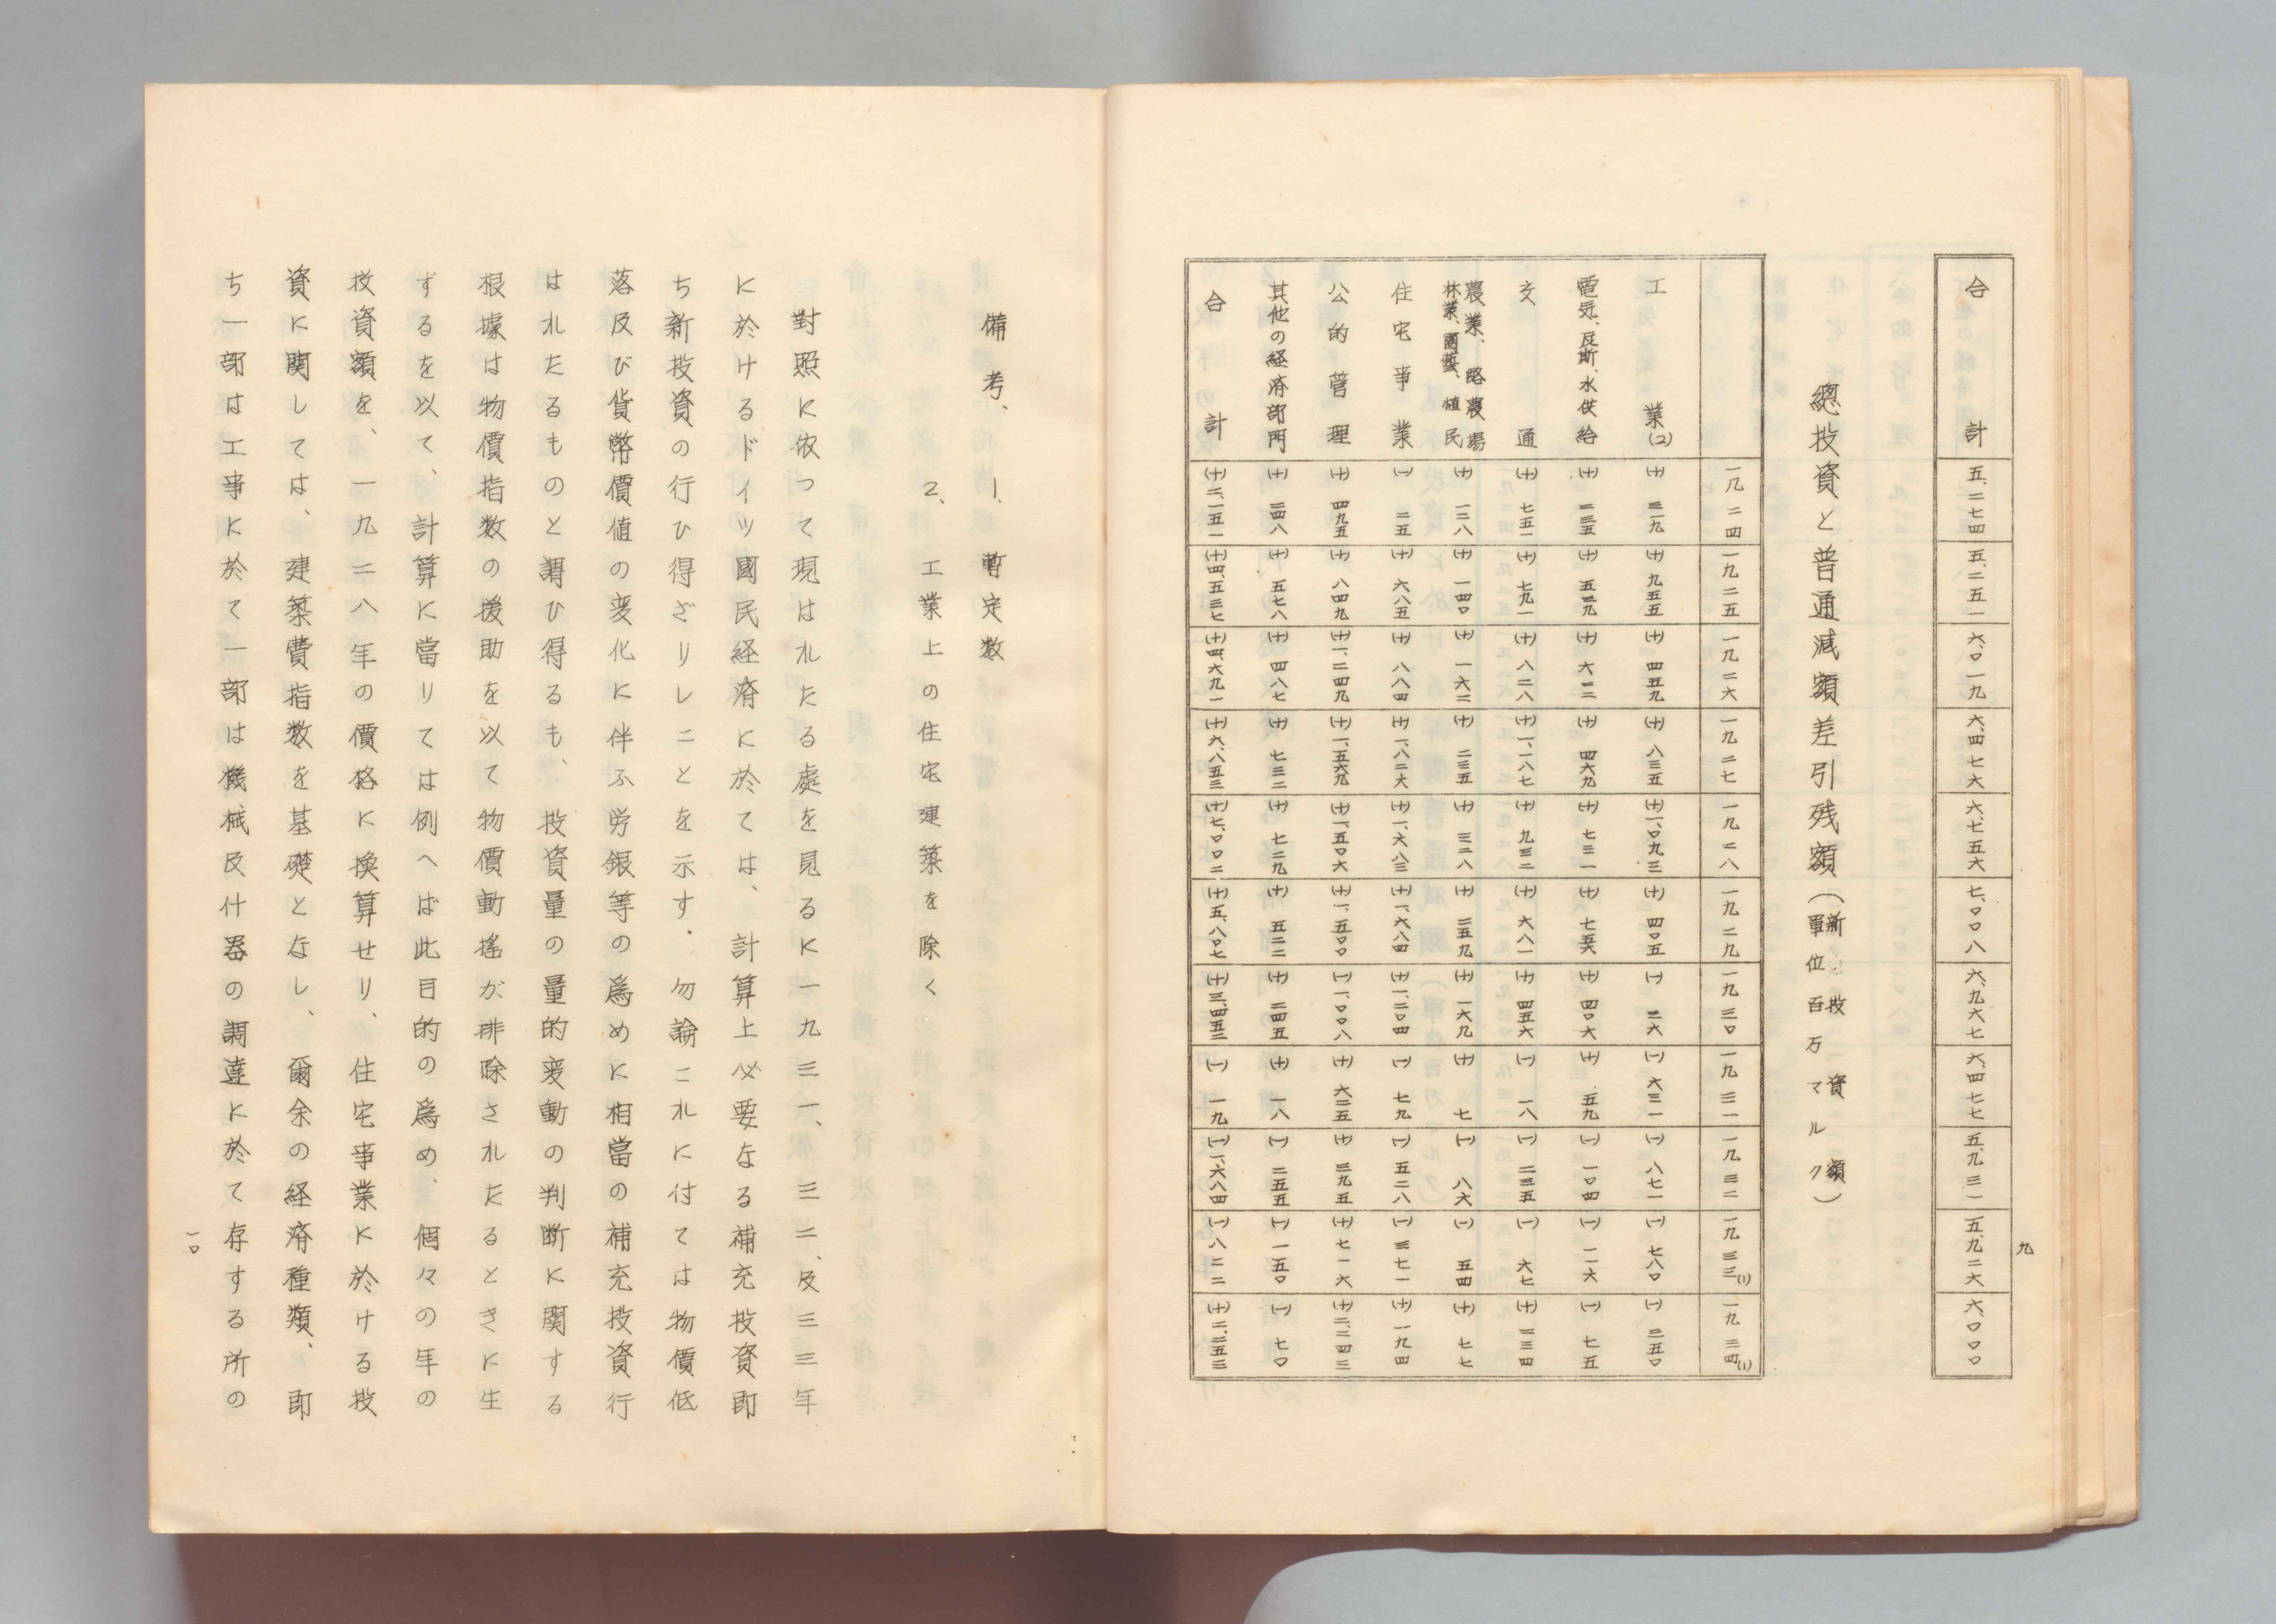 九
合計 五、二七四 五、二五一 六、〇一九 六、四七六 六、七五六 七、〇〇八 六、九六七 六、四七七 五、九三一 五、九二六 六、〇〇〇
總投資と普通減額差引残額（新投資額 單位百万マルク）
一九二四 一九二五 一九二六 一九二七 一九二八 一九二九 一九三〇 一九三一 一九三二 一九三三(1) 一九三四(1)
工業(2) (+)三一九 (+)九五五 (+)四五九 (+)八三五 (+)一、〇九三 (+)四〇五 (-)二六 (-)六三一 (-)八七一 (-)七八〇 (-)三五〇
電気、瓦斯、水供給 (+)二三五 (+)五三九 (+)六二二 (+)四六九 (+)七三一 (+)七五六 (+)四〇六 (+)五九 (-)一〇四 (-)一一六 (-)七五
交通 (+)七五一 (+)七九一 (+)八二八 (+)一、一八七 (+)九三二 (+)六八一 (+)四五六 (-)一八 (-)二三五 (-)六七 (+)二三四
農業、略農場林業、園藝、植民 (+)一二八 (+)一四〇 (+)一六二 (+)二三五 (+)三二八 (+)二五九 (+)一六九 (+)七 (-)八六 (-)五四 (+)七七
住宅事業 (-)二五 (+)六八五 (+)八八四 (+)一、八二六 (+)一、六八三 (+)一、六八四 (+)一、二〇四 (-)七九 (-)五二八 (-)三七一 (+)一九四
公的管理 (+)四九五 (+)八四九 (+)一、二四九 (+)一、五六九 (+)一、五〇六 (+)一、五〇〇 (-)一、〇〇八 (+)六二五 (+)三九五 (+)七一六 (+)二、二四三
其他の経済部門 (+)二四八 (+)五七八 (+)四八七 (+)七三二 (+)七二九 (+)五二二 (+)二四五 (+)一八 (-)二五五 (-)一五〇 (-)七〇
合計 (+)二、一五一 (+)四、五三七 (+)四、六九一 (+)六、八五三 (+)七、〇〇二 (+)五、八〇七 (+)三、四五三 (-)一九 (-)一、六八四 (-)八二二 (+)二、二五三
備考、1. 暫定数
2、工業上の住宅建築を除く
對照に依つて現はれたる處を見るに一九三一、三二、及三三年
に於けるドイツ國民経済に於ては、計算上必要なる補充投資即
ち新投資の行ひ得ざりしことを示す。勿論これに付ては物價低
落及び貨幣價値の変化に伴ふ労銀等の為めに相當の補充投資行
はれたるものと謂ひ得るも、投資量の量的変動の判断に関する
根據は物價指数の援助を以て物價動搖が排除されたるときに生
ずるを以て、計算に當りては例へば此目的の為め、個々の年の
投資額を、一九二八年の價格に換算せり、住宅事業に於ける投
資に関しては、建築費指数を基礎となし、爾余の経済種類、即
ち一部は工事に於て一部は機械及什器の調達に於て存する所の
一〇